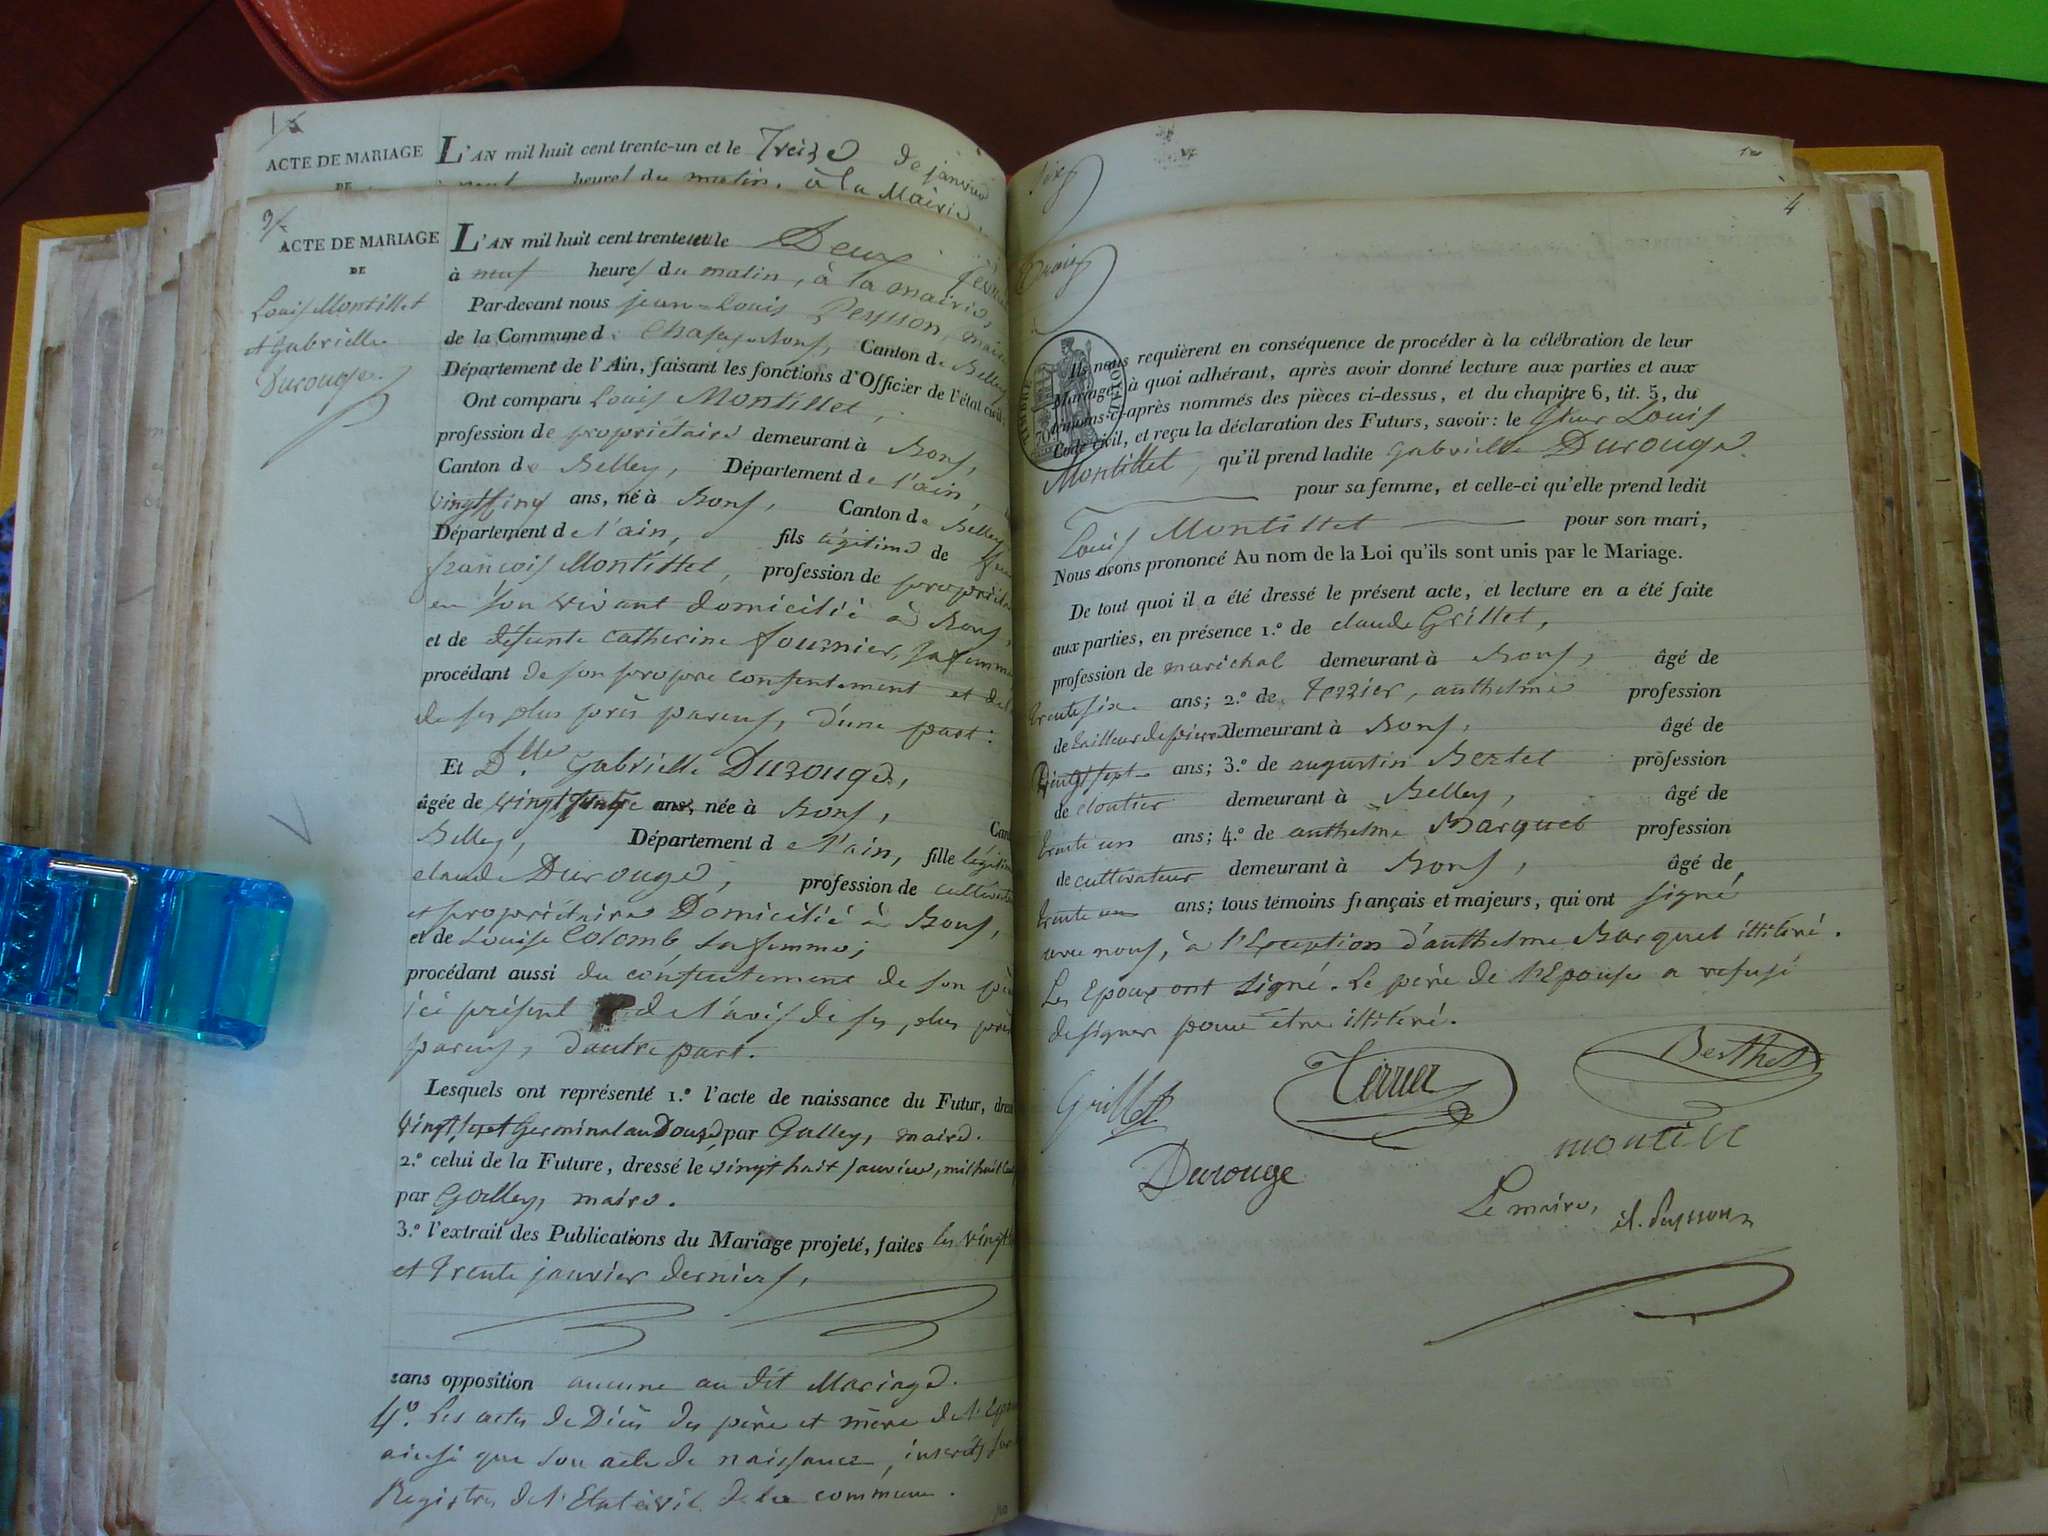 ACTE DE MARIAGE
DE
L'AN mil huit cent trente-un et le Treize de janvier
heures du matin, à la Mairie
3
ACTE DE MARIAGE
DE
Louis Montillet
et Gabrielle
Durouge.
L'AN mil huit cent trente et le Deux
à neuf heures du matin, à la mairie,
Par-devant nous jean-Louis Peysson, maire
de la Commune d. Canton de Belley
Département de l'Ain, faisant les fonctions d'Officier de l'état civil.
Ont comparu Louis Montillet,
profession de propriétaire demeurant à Bons,
Canton de Belley, Département de l'ain,
ans, né à Bons, Canton de Belley
Département de l'ain, fils légitime de
françois Montillet, profession de
en son vivant domicilié à Bons,
et de défunte Catherine fournier, sa femme
procédant de son propre consentement et de
de ses plus près parens, d'une part:
Et Dlle Gabrielle Durouge,
âgée de ans, née à Bons,
Belley, Département de l'ain, fille
claude Durouge, profession de
et propriétaire Domicilié à Bons,
et de Louise Colomb sa femme;
procédant aussi du consentement de son
ici présent de l'avis de ses plus près
parens, d'autre part.
Lesquels ont représenté 1.º l'acte de naissance du Futur,
vingt sept Germinal an Douze, par Galley, maire.
2.º celui de la Future, dressé le vingt huit janvier, mil huit
par Galley, maire.
3.º l'extrait des Publications du Mariage projeté, faites les vingt
et trente janvier derniers,
sans opposition aucune au dit Mariage.
4º. les actes de Décès des père et mère de
ainsi que son acte de naissance, inscrits
Registres de l'Etat civil de la commune.
4
Ils nous requièrent en conséquence de procéder à la célébration de leur
Mariage, à quoi adhérant, après avoir donné lecture aux parties et aux
témoins ci-après nommés des pièces ci-dessus, et du chapitre 6, tit. 5, du
Code civil, et reçu la déclaration des Futurs, savoir: le sieur Louis
Montillet, qu'il prend ladite gabrielle Durouge.
pour sa femme, et celle-ci qu'elle prend ledit
Louis Montillet pour son mari,
Nous avons prononcé Au nom de la Loi qu'ils sont unis par le Mariage.
De tout quoi il a été dressé le présent acte, et lecture en a été faite
aux parties, en présence 1.º de claude Grillet,
profession de maréchal demeurant à Bons, âgé de
trente six ans; 2.º de Terrier, anthelme profession
de tailleur de pierre demeurant à Bons, âgé de
vingt sept ans; 3.º de augustin Bertet profession
de cloutier demeurant à Belley, âgé de
trente un ans; 4.º de anthelme Barquet profession
de cultivateur demeurant à Bons, âgé de
trente un ans; tous témoins français et majeurs, qui ont signé
avec nous, à l'Exception d'anthelme Barquet illitéré.
Les Epoux ont signé. Le père de l'Epouse a refusé
de signer pour être illitéré.
Grillet
Terrier
Berthet
Durouge
Le maire,